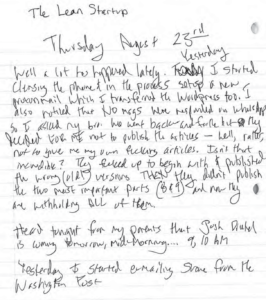 The Lean Startup
Thursday August 23rd
Yesterday
Well a lot to happened lately. I started
clensing the phone & in the process setup a new
which I transferred the Wordpress too. I
also noticed that No msgs were respond on whatsapp
so I asked my bro. He went back and
not to publish the articles – hell, rather
not to give me my own fucking articles. Isn't that
incredible? They fucked up to begin with & published
the wrong (old) versions THEN they didn't publish
the two most important parts (8+9) and now they
are withholding ALL of them.
Heard tonight from my parents that Josh
is coming tomorrow, mid-morning... 9, 10 AM
Yesterday I started e-mailing Shane from the
Washington Post